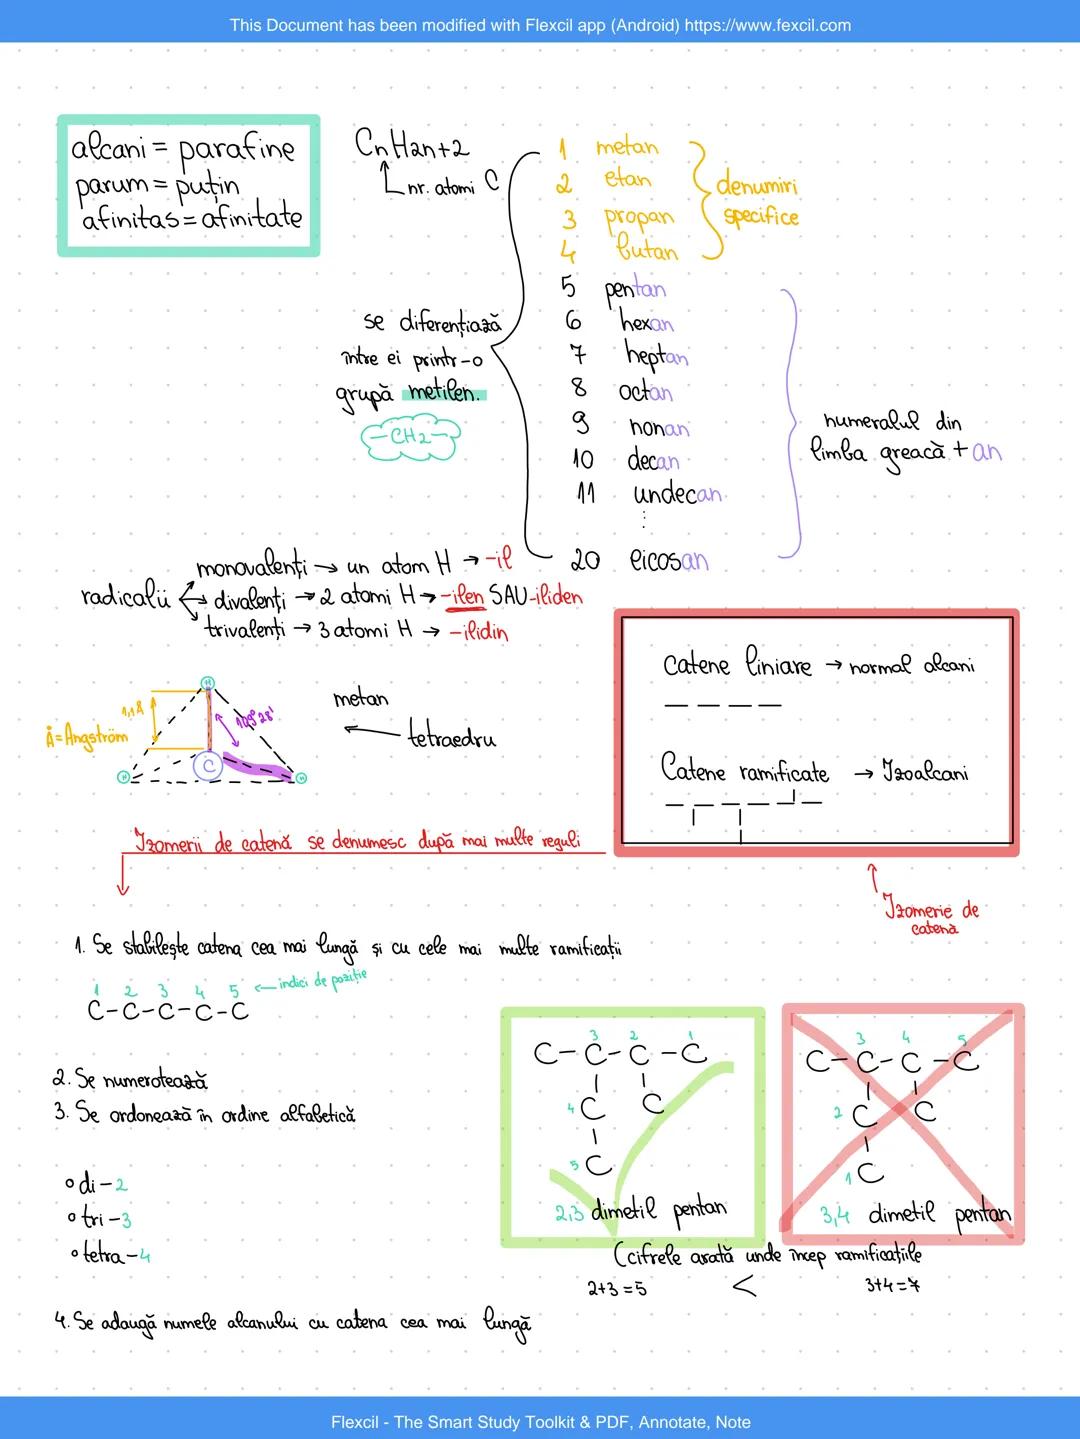 This Document has been modified with Flexcil app (Android) https://www.fexcil.com
alcani = parafine
parum = puțin
afinitas = afinitate
CnH2n+2
nr. atomi C
1 metan
2 etan
3 propan
4 butan
denumiri
specifice
5 pentan
6 hexan
7 heptan
8 octan
9 nonan
10 decan
11 undecan
⋮
20 eicosan
se diferențiază
între ei printr-o
grupă metilen.
-CH2-
numeralul din
limba greacă + an
radicalii
monovalenți → un atom H → -il
divalenți → 2 atomi H → -ilen SAU -iliden
trivalenți → 3 atomi H → -ilidin
Catene liniare → normal alcani
Catene ramificate → Izoalcani
Izomerie de
catenă
metan
← tetraedru
H
1,1Å
109°28'
Å=Angström
C
H
H
Izomerii de catenă se denumesc după mai multe reguli
1. Se stabilește catena cea mai lungă și cu cele mai multe ramificații
1 2 3 4 5 ← indici de poziție
C-C-C-C-C
2. Se numerotează
3. Se ordonează în ordine alfabetică
di-2
tri-3
tetra-4
3 2 1
C-C-C-C
4 C C
5 C
2,3 dimetil pentan
3 4 5
C-C-C-C
2 C C
1 C
3,4 dimetil pentan
(cifrele arată unde încep ramificațiile
2+3=5 < 3+4=7
4. Se adaugă numele alcanului cu catena cea mai lungă
Flexcil - The Smart Study Toolkit & PDF, Annotate, Note